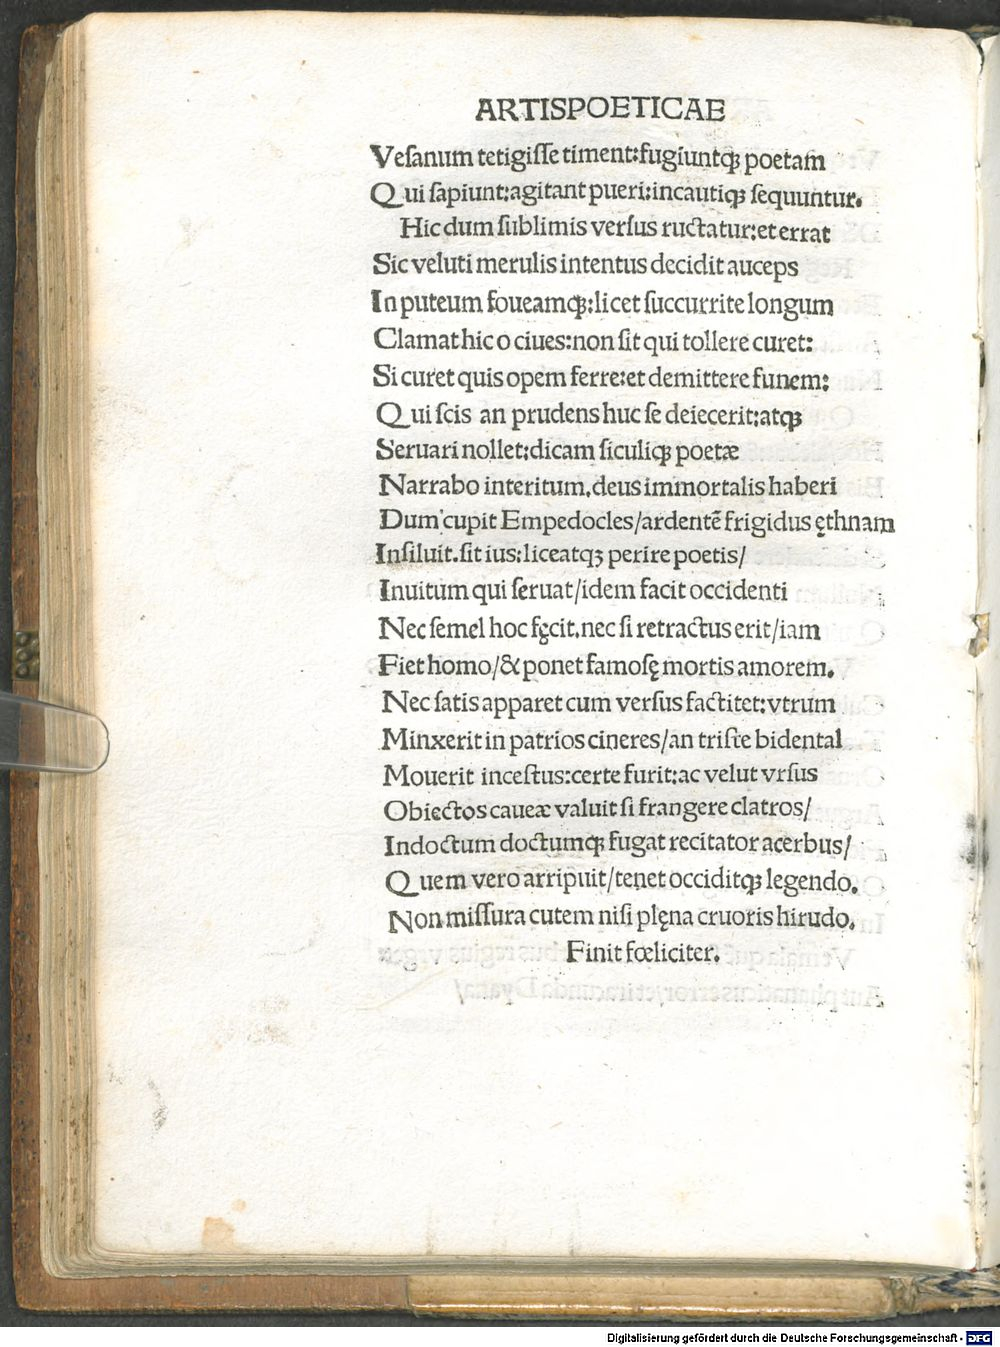 ARTISPOETICAE
Veſanum tetigiſſe timent:fugiuntqꝫ poetam
Qui ſapiunt:agitant pueri:incautiqꝫ ſequuntur.
Hic dum ſublimis verſus ructatur:et errat
Sic veluti merulis intentus decidit auceps
In puteum foueamqꝫ:licet ſuccurrite longum
Clamat hic o ciues:non ſit qui tollere curet:
Si curet quis opem ferre:et demittere funem:
Qui ſcis an prudens huc ſe deiecerit:atqꝫ
Seruari nollet:dicam ſiculiqꝫ poetæ
Narrabo interitum.deus immortalis haberi
Dum cupit Empedocles/ardentē frigidus ęthnam
Inſiluit.ſit ius:liceatqꝫ perire poetis/
Inuitum qui ſeruat/idem facit occidenti
Nec ſemel hoc fęcit.nec ſi retractus erit/iam
Fiet homo/& ponet famoſę mortis amorem.
Nec ſatis apparet cum verſus factitet:vtrum
Minxerit in patrios cineres/an triſte bidental
Mouerit inceſtus:certe furit:ac velut vrſus
Obiectos caueæ valuit ſi frangere clatros/
Indoctum doctumqꝫ fugat recitator acerbus/
Quem vero arripuit/tenet occiditqꝫ legendo.
Non miſſura cutem niſi plęna cruoris hirudo.
Finit fœliciter.
Digitalisierung gefördert durch die Deutsche Forschungsgemeinschaft - DFG